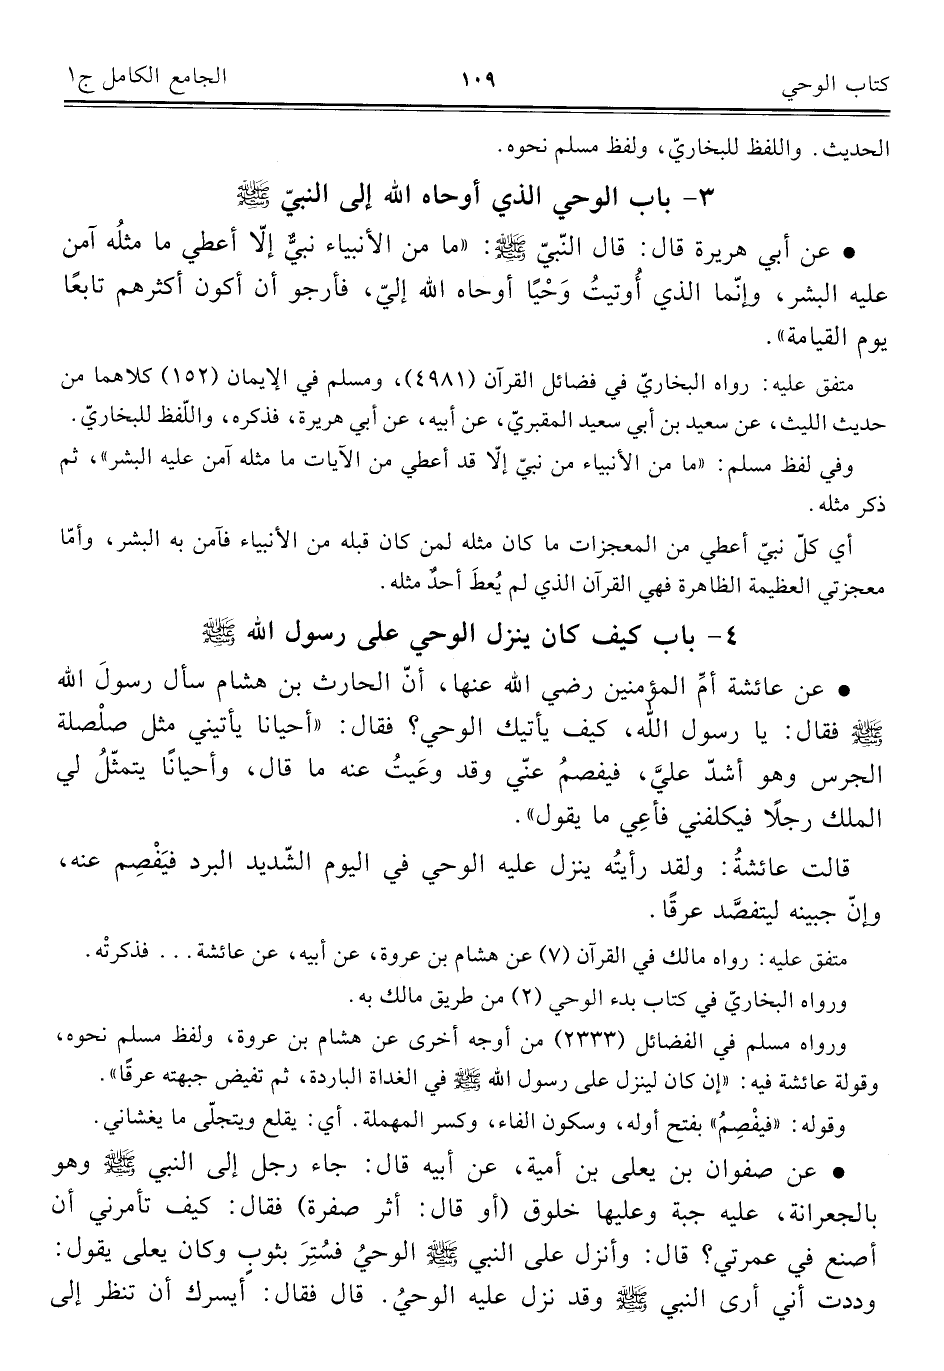 كتاب الوحي ١٠٩ الجامع الكامل ج١
الحديث. واللفظ للبخاريّ، ولفظ مسلم نحوه.
٣- باب الوحي الذي أوحاه الله إلى النبيّ ﷺ
• عن أبي هريرة قال: قال النّبيّ ﷺ: «ما من الأنبياء نبيٌّ إلّا أعطي ما مثلُه آمن
عليه البشر، وإنّما الذي أُوتيتُ وَحْيًا أوحاه الله إليّ، فأرجو أن أكون أكثرهم تابعًا
يوم القيامة».
متفق عليه: رواه البخاريّ في فضائل القرآن (٤٩٨١)، ومسلم في الإيمان (١٥٢) كلاهما من
حديث الليث، عن سعيد بن أبي سعيد المقبريّ، عن أبيه، عن أبي هريرة، فذكره، واللّفظ للبخاريّ.
وفي لفظ مسلم: «ما من الأنبياء من نبيّ إلّا قد أعطي من الآيات ما مثله آمن عليه البشر»، ثم
ذكر مثله.
أي كلّ نبيّ أعطي من المعجزات ما كان مثله لمن كان قبله من الأنبياء فآمن به البشر، وأمّا
معجزتي العظيمة الظاهرة فهي القرآن الذي لم يُعطَ أحدٌ مثله.
٤- باب كيف كان ينزل الوحي على رسول الله ﷺ
• عن عائشة أمِّ المؤمنين رضي الله عنها، أنّ الحارث بن هشام سأل رسولَ الله
ﷺ فقال: يا رسول الله، كيف يأتيك الوحي؟ فقال: «أحيانا يأتيني مثل صلْصلة
الجرس وهو أشدّ عليَّ، فيفصمُ عنّي وقد وعَيتُ عنه ما قال، وأحيانًا يتمثّلُ لي
الملك رجلًا فيكلفني فأعِي ما يقول».
قالت عائشةُ: ولقد رأيتُه ينزل عليه الوحي في اليوم الشّديد البرد فيَفْصِم عنه،
وإنّ جبينه ليتفصَّد عرقًا.
متفق عليه: رواه مالك في القرآن (٧) عن هشام بن عروة، عن أبيه، عن عائشة... فذكرتْه.
ورواه البخاريّ في كتاب بدء الوحي (٢) من طريق مالك به.
ورواه مسلم في الفضائل (٢٣٣٣) من أوجه أخرى عن هشام بن عروة، ولفظ مسلم نحوه،
وقولة عائشة فيه: «إن كان لينزل على رسول الله ﷺ في الغداة الباردة، ثم تفيض جبهته عرقًا».
وقوله: «فيفْصِمُ» بفتح أوله، وسكون الفاء، وكسر المهملة. أي: يقلع ويتجلّى ما يغشاني.
• عن صفوان بن يعلى بن أمية، عن أبيه قال: جاء رجل إلى النبي ﷺ وهو
بالجعرانة، عليه جبة وعليها خلوق (أو قال: أثر صفرة) فقال: كيف تأمرني أن
أصنع في عمرتي؟ قال: وأنزل على النبي ﷺ الوحيُ فسُتِرَ بثوبٍ وكان يعلى يقول:
وددت أني أرى النبي ﷺ وقد نزل عليه الوحيُ. قال فقال: أيسرك أن تنظر إلى